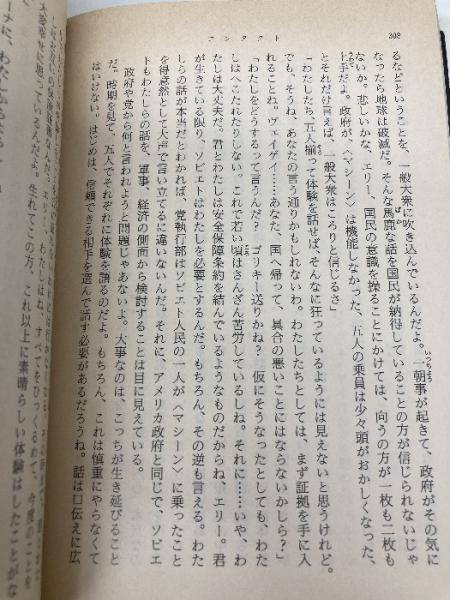 コンタクト
308
るなどということを、一般大衆に吹き込んでいるんだよ。一朝事が起きて、政府がその気に
なったら地球は破滅だ。そんな馬鹿な話を国民が納得していることの方が信じられないじゃ
ないか。悲しいかな、エリー、国民の意識を操ることにかけては、向うの方が一枚も二枚も
上手だよ。政府が、〈マシーン〉は機能しなかった、五人の乗員は少々頭がおかしくなった、
とそれだけ言えば、一般大衆はころりと信じるさ」
「わたしたち、五人揃って体験を話せば、そんなに狂っているようには見えないと思うけれど。
でも、そうね、あなたの言う通りかもしれないわ。わたしたちとしては、まず証拠を手に入
れることね。ヴェイゲイ……あなた、国へ帰って、具合の悪いことにはならないかしら？」
「わたしをどうするって言うんだ？ ゴリキー送りかね？ 仮にそうなったとしても、わた
しはへこたれたりしない。これで若い頃はさんざん苦労しているしね。それに……いや、わ
たしは大丈夫だ。君とわたしは安全保障条約を結んでいるようなものだからね、エリー。君
が生きている限り、ソビエトはわたしを必要とするんだ。もちろん、その逆も言える。わた
しらの話が本当だとわかれば、党執行部はソビエト人民の一人が〈マシーン〉に乗ったこと
を得意然として大声で言い立てるに違いないんだ。それに、アメリカ政府と同じで、ソビエ
トもわたしらの話を、軍事、経済の側面から検討することは目に見えている。
政府や党から何と言われようと問題じゃあないよ。大事なのは、こっちが生き延びること
だ。時期を見て、五人でそれぞれに体験を語るのだよ。もちろん、これは慎重にやらなくて
はいけない。はじめは、信頼できる相手を選んで話す必要があるだろうね。話は口伝えに広